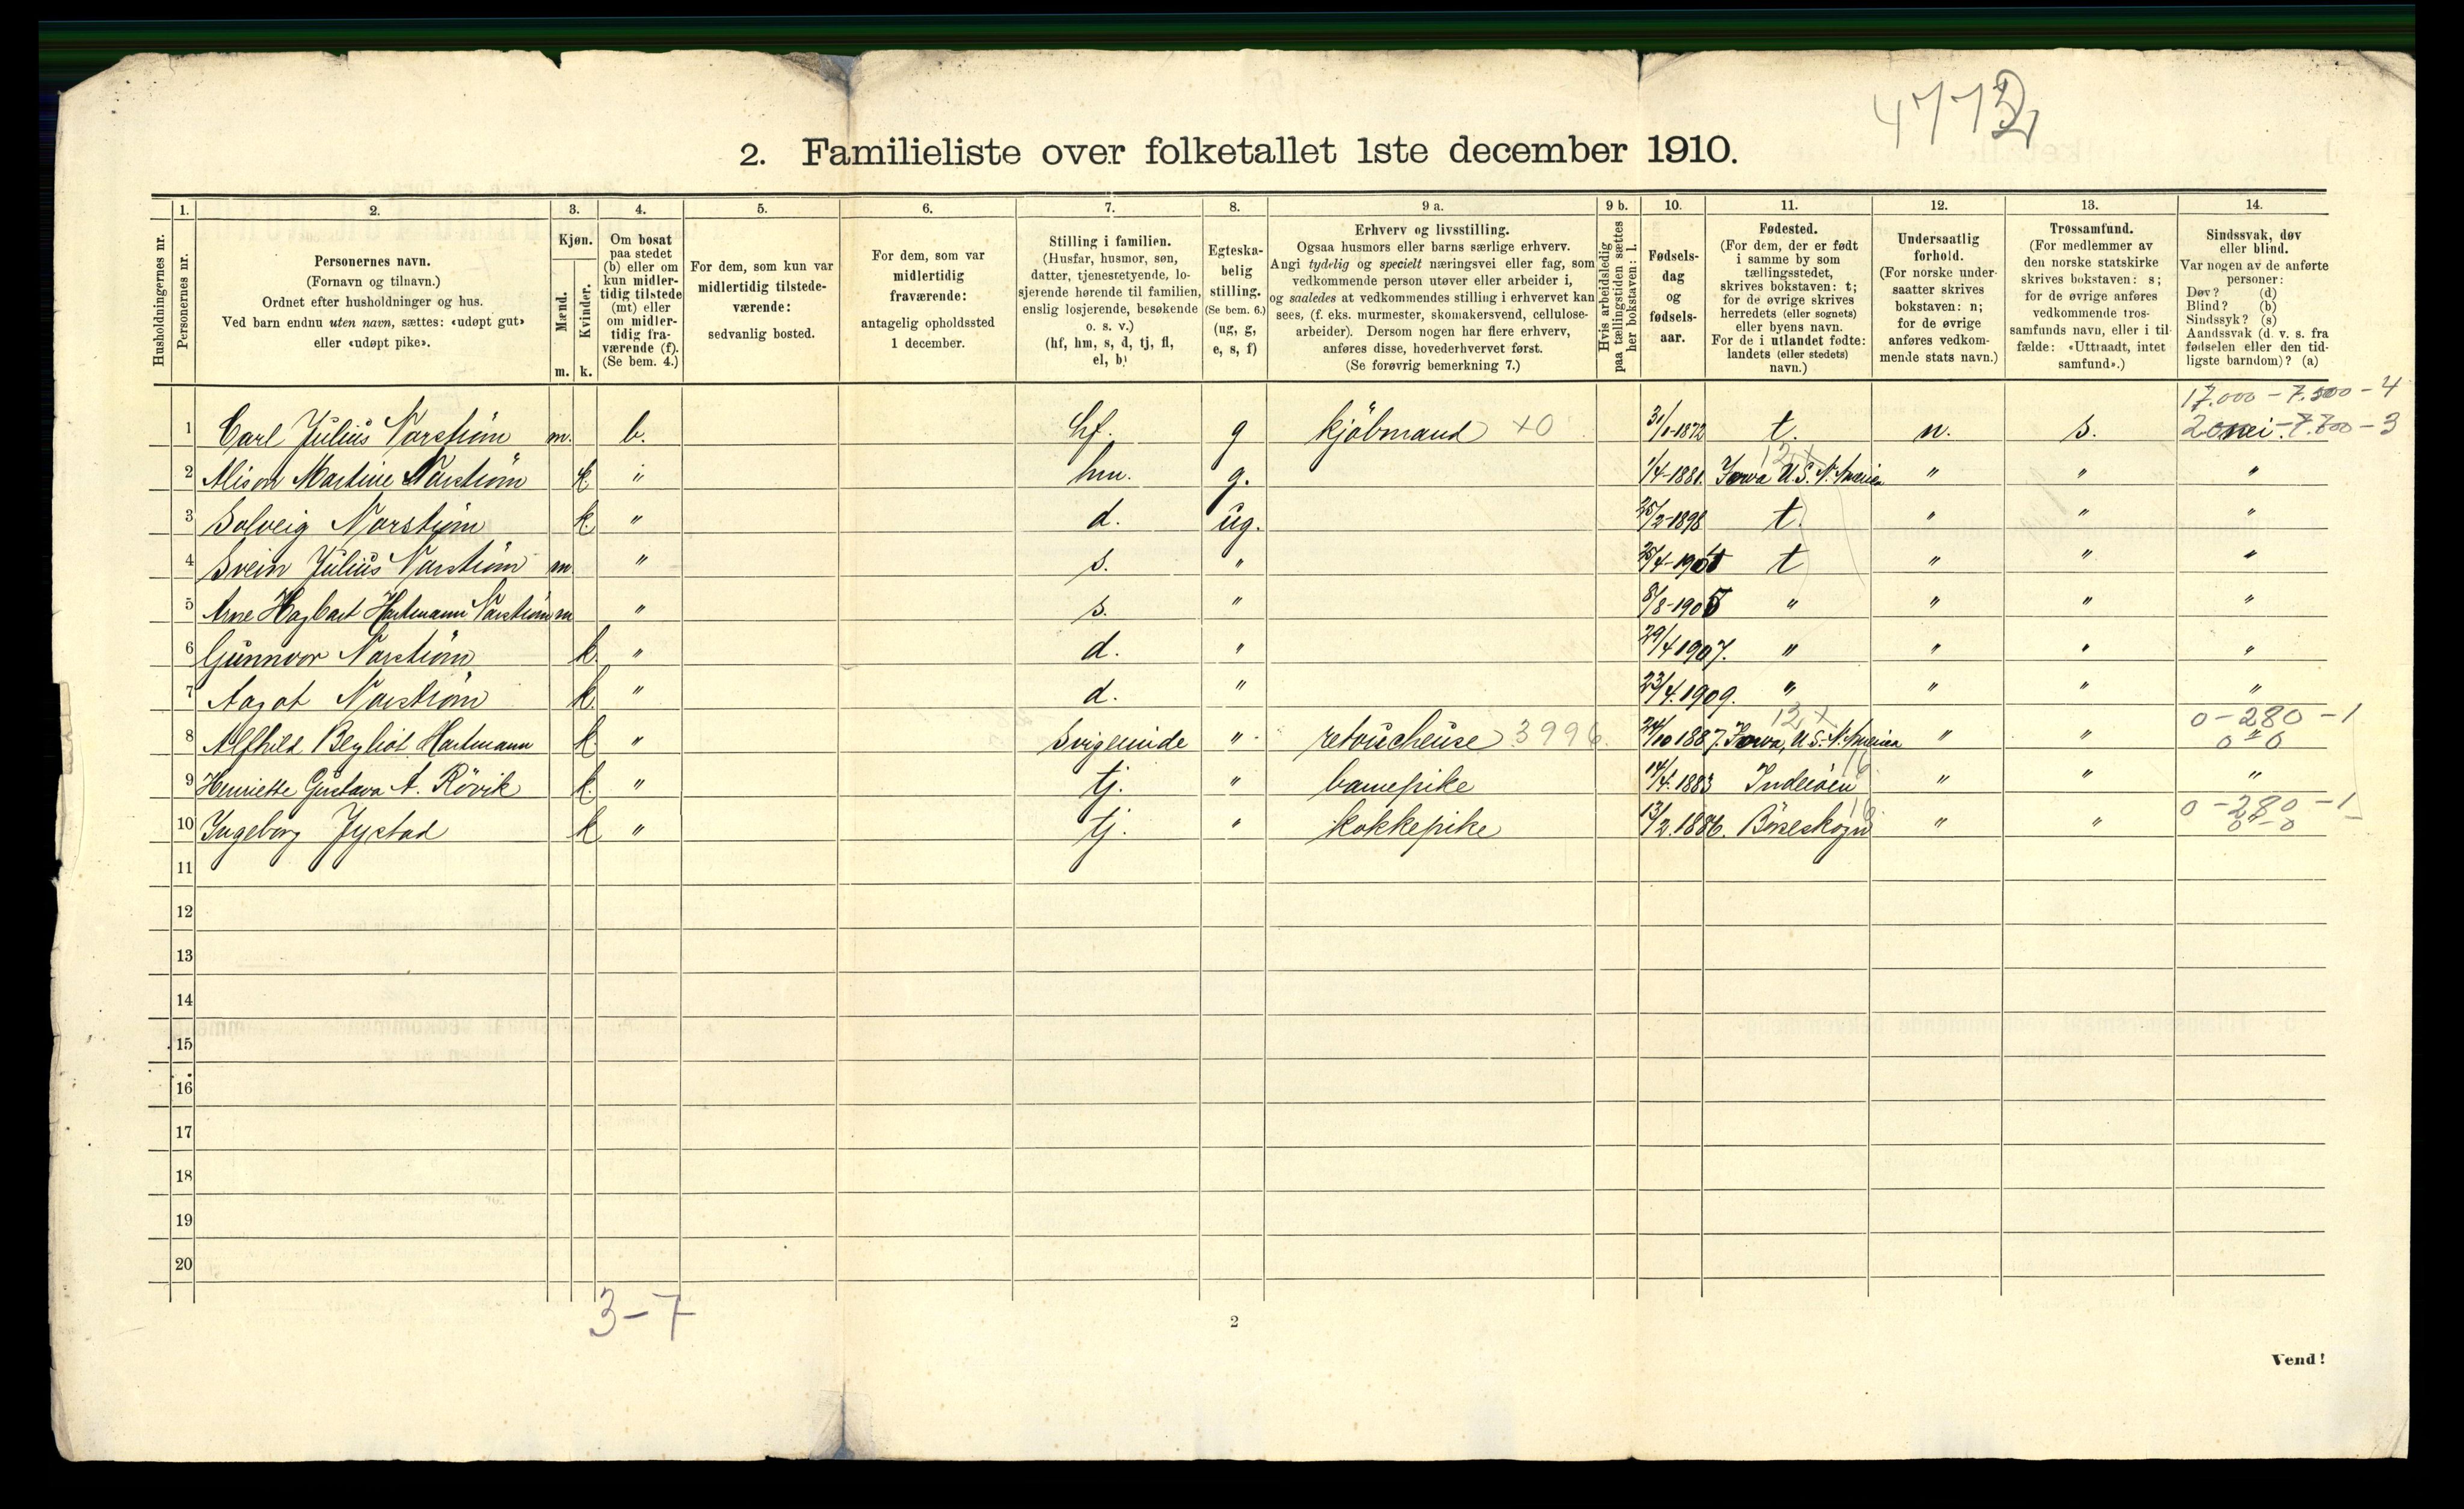 4772
2. Familieliste over folketallet 1ste december 1910.
Husholdningernes nr.
1. Personernes nr.
2. Personernes navn.
(Fornavn og tilnavn.)
Ordnet efter husholdninger og hus.
Ved barn endnu uten navn, sættes: «udøpt gut»
eller «udøpt pike».
3. Kjøn.
Mænd. Kvinder.
m. k.
4. Om bosat
paa stedet
(b) eller om
kun midler-
tidig tilstede
(mt) eller
om midler-
tidig fra-
værende (f).
(Se bem. 4.)
5. For dem, som kun var
midlertidig tilstede-
værende:
sedvanlig bosted.
6. For dem, som var
midlertidig
fraværende:
antagelig opholdssted
1 december.
7. Stilling i familien.
(Husfar, husmor, søn,
datter, tjenestetyende, lo-
sjerende hørende til familien,
enslig losjerende, besøkende
o. s. v.)
(hf, hm, s, d, tj, fl,
el, b)
8. Egteska-
belig
stilling.
(Se bem. 6.)
(ug, g,
e, s, f)
9 a. Erhverv og livsstilling.
Ogsaa husmors eller barns særlige erhverv.
Angi tydelig og specielt næringsvei eller fag, som
vedkommende person utøver eller arbeider i,
og saaledes at vedkommendes stilling i erhvervet kan
sees, (f. eks. murmester, skomakersvend, cellulose-
arbeider). Dersom nogen har flere erhverv,
anføres disse, hovederhvervet først.
(Se forøvrig bemerkning 7.)
9 b. Hvis arbeidsledig
paa tællingstiden sættes
her bokstaven: l.
10. Fødsels-
dag
og
fødsels-
aar.
11. Fødested.
(For dem, der er født
i samme by som
tællingsstedet,
skrives bokstaven: t;
for de øvrige skrives
herredets (eller sognets)
eller byens navn.
For de i utlandet fødte:
landets (eller stedets)
navn.)
12. Undersaatlig
forhold.
(For norske under-
saatter skrives
bokstaven: n;
for de øvrige
anføres vedkom-
mende stats navn.)
13. Trossamfund.
(For medlemmer av
den norske statskirke
skrives bokstaven: s;
for de øvrige anføres
vedkommende tros-
samfunds navn, eller i til-
fælde: «Uttraadt, intet
samfund».)
14. Sindssvak, døv
eller blind.
Var nogen av de anførte
personer:
Døv? (d)
Blind? (b)
Sindssyk? (s)
Aandssvak (d. v. s. fra
fødselen eller den tid-
ligste barndom)? (a)
17.000 - 7.500 - 4
1 Carl Julius Narström m. b. hf. g kjöbmand +0 31/1-1872 t. n. s. nei. 7.800 - 3
2 Alison Martine Narström k " hm. g. 1/4-1881. Iowa U.S. N. America " " "
3 Solveig Narström k. " d. ug. 25/2-1898 t. " " "
4 Svein Julius Narström m " s. " 25/4-1904 t " " "
5 Arne Hagbart Hartmann Narström m " s. " 8/8-1905 " " " "
6 Gunnvor Narström k. " d. " 29/4 1907. " " " "
7 Aagot Narström k. " d. " 23/4.1909. " " " "
0 - 280 - 1
8 Alfhild Bergliot Hartmann k. " Svigerinde " retoucheuse 3996 24/10 1887. Iowa, U.S. N. America " " " 0 0
9 Henriette Gustava A. Rövik k. " tj. " barnepike 14/4.1883 Inderöen " " "
0 - 280 - 1
10 Ingeborg Jystad k " tj. " kokkepike 13/2.1886. Börseskogn " " 0 - 0
11
12
13
14
15
16
17
18
19
20
3-7
2
Vend!